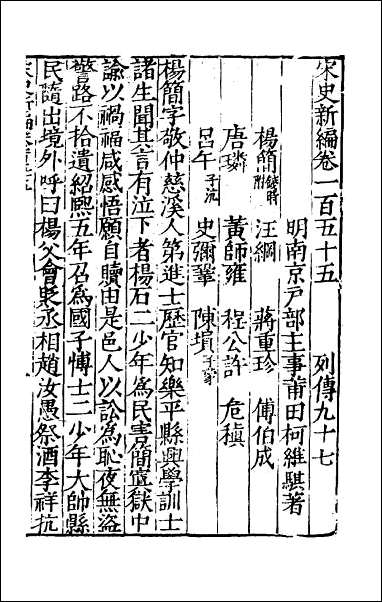 宋史新編卷一百五十五 列傳九十七
明南京戶部主事莆田柯維騏著
楊簡 錢時附 汪綱 蔣重珍 傅伯成
唐璘 黃師雍 程公許 危稹
呂午 子沆 史彌鞏 陳塤
楊簡字敬仲慈溪人第進士歷官知樂平縣興學訓士
諸生聞其言有泣下者楊石二少年爲民害簡寘獄中
諭以禍福咸感悟願自贖由是邑人以訟爲恥夜無盜
警路不拾遺紹熙五年召爲國子博士二少年大帥縣
民隨出境外呼曰楊父會斥丞相趙汝愚祭酒李祥抗